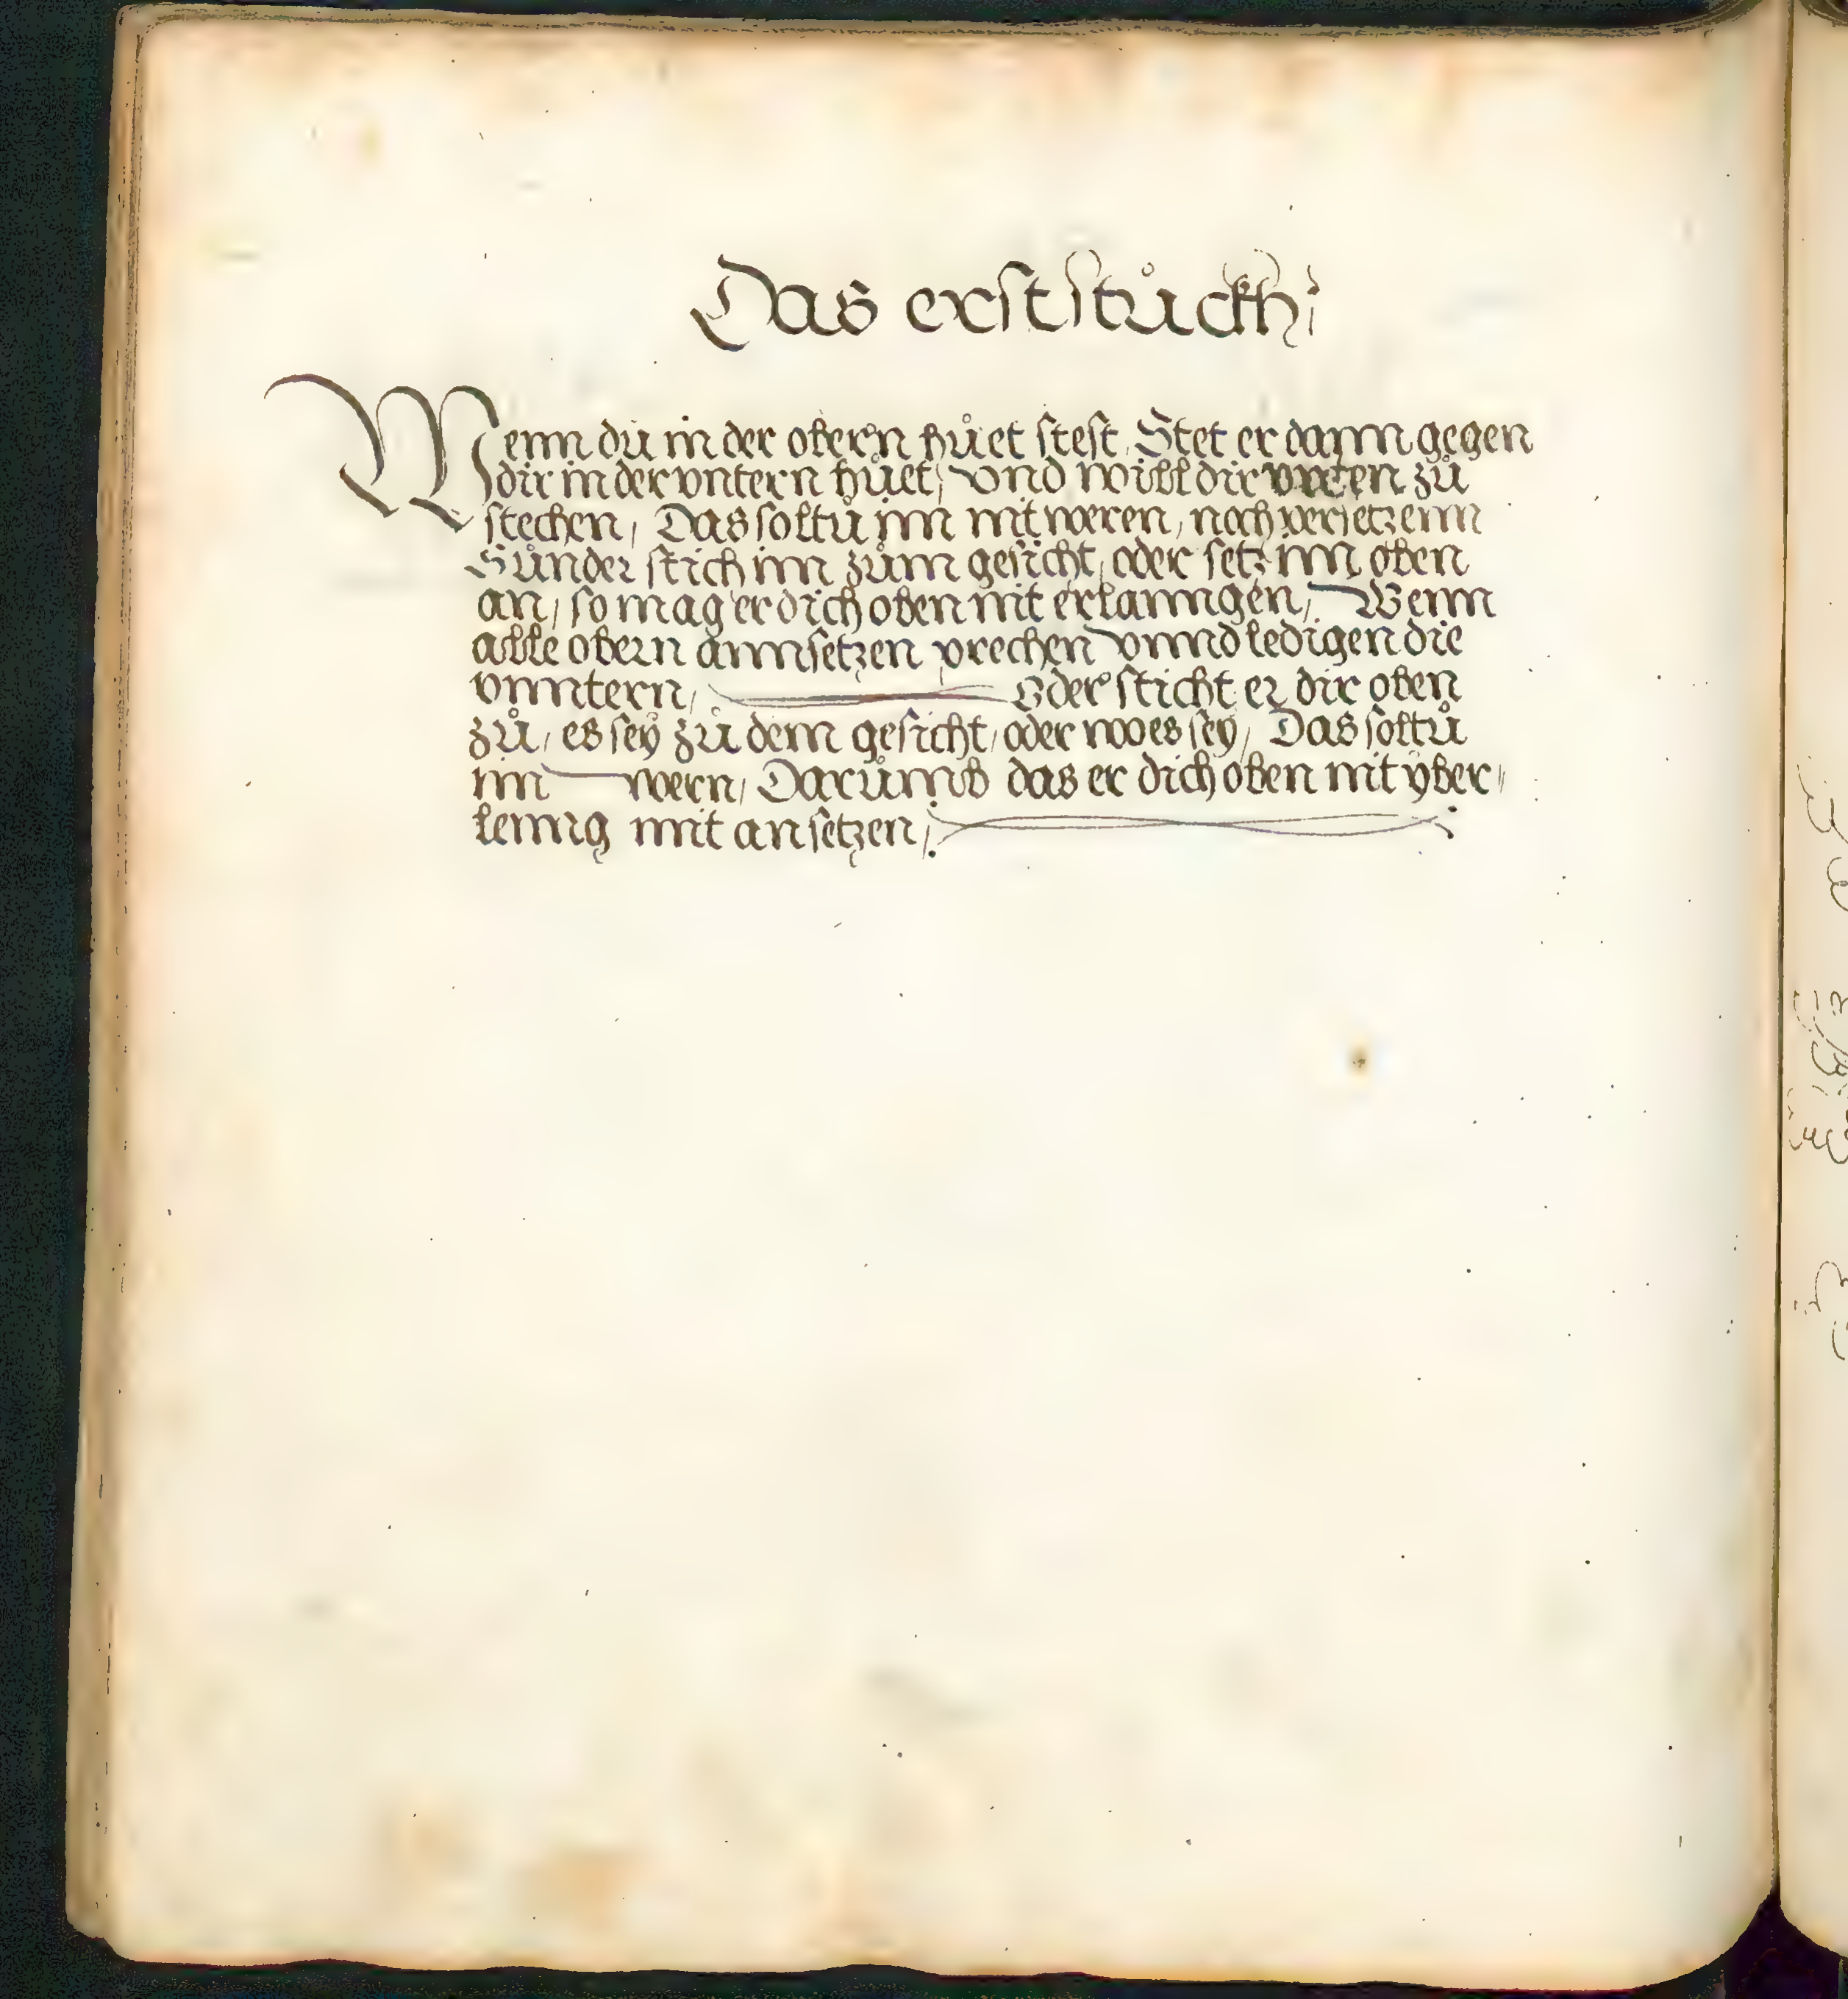 Das erst stůckh
Wenn dů in der obern hůet stest, Stet er dann gegen
dir in der vntern hůet, vnd will dir vnten zů
stechen, Das soltů im nit weren, noch versetzenn
Sůnder stich im zům gesicht, oder setz im oben
an, so mag er dich oben nit erlanngen, Wenn
alle obern annsetzen prechen vnnd ledigen die
vnntern, Oder sticht er dir oben
zů, es seÿ zů dem gesicht, oder wo es seÿ, Das soltů
im wern, Darůmb das er dich oben nit ÿber
lenng mit an setzen,